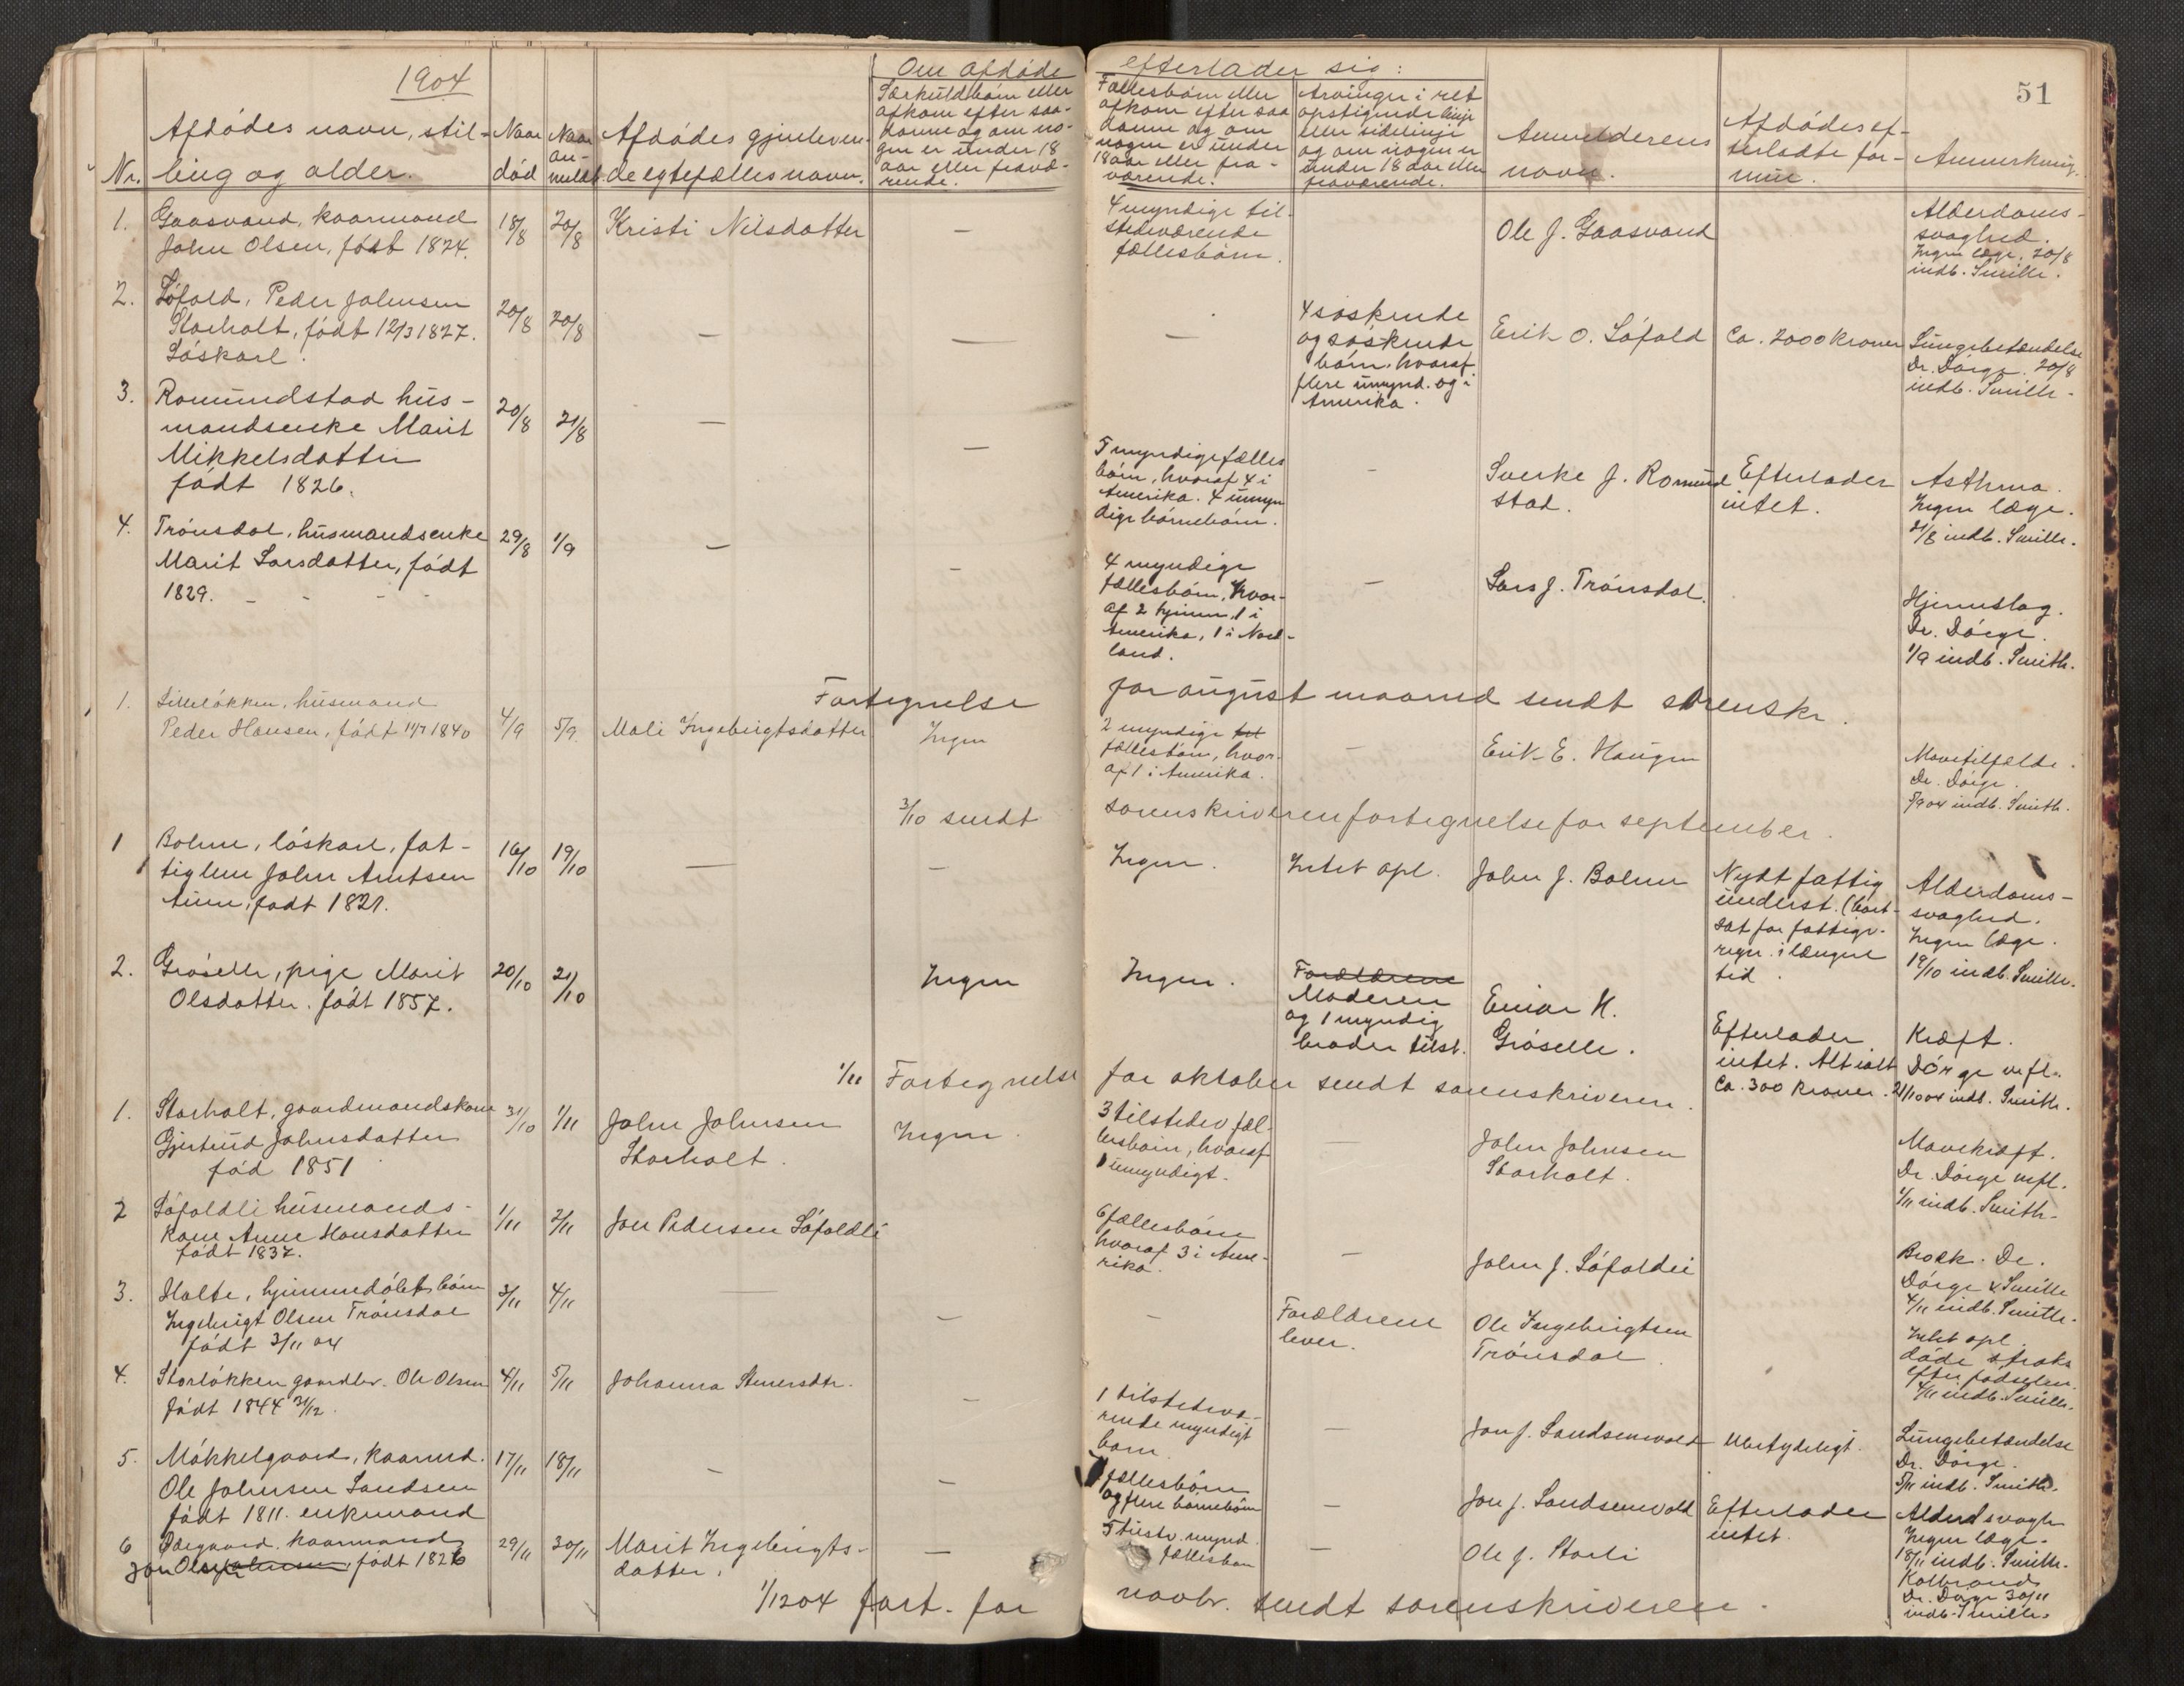 1904
51
Om afdøde efterlader sig:
Nr.
Afdødes navn, stil-
ling og alder.
Naar
død
Naar
an-
meldt.
Afdødes gjenleven-
de egtefælles navn.
Særkuldbørn eller
afkom efter saa-
danne og om no-
gen er under 18
aar eller fravæ-
rende.
Fællesbørn eller
afkom efter saa
danne og om
nogen er under
18 aar eller fra-
værende.
Arvinger i ret
opstigende linje
eller sidelinje
og om nogen er
under 18 aar eller
fraværende.
Anmelderens
navn.
Afdødes ef-
terladte for-
mue.
Anmerkning.
1. Gaasvand, kaarmand
John Olsen, født 1824.
18/8 20/8 Kristi Nilsdatter —
4 myndige til-
stedeværende
fællesbørn.
Ole J. Gaasvand
Alderdoms-
svaghed.
Ingen læge. 20/8
indb. Smith.
2. Løfald, Peder Johnsen
Storholt, født 12/3 1827.
Løskarl.
20/8 20/8 — — —
4 søskende
og søskende
børn, hvoraf
flere umynd. og i
Amerika.
Erik O. Løfald
Ca. 2000 kroner
Lungebetændelse
Dr. Dørge. 20/8
indb. Smith.
3. Romundstad hus-
mandsenke Marit
Mikkelsdatter
født 1826.
20/8 21/8 — —
5 myndige fælles
børn, hvoraf 4 i
Amerika. 4 umyn
dige børnebørn.
—
Sverke J. Romund
stad.
Efterlader
intet.
Asthma.
Ingen læge.
21/8 indb. Smith.
4. Trønsdal, husmandsenke
Marit Larsdatter, født
1829. - - - -
29/8 1/9 — —
4 myndige
fællesbørn, hvor-
af 2 hjemme, 1 i
Amerika, 1 i Nord-
land.
—
Lars J. Trønsdal.
Hjerneslag.
Dr. Dørge.
1/9 indb. Smith.
Fortegnelse for august maaned sendt sorenskr.
1. Lilleløkken, husmand
Peder Hansen, født 14/7 1840
4/9 5/9 Mali Ingebrigtsdatter Ingen
2 myndige
fællesbørn, hvor-
af 1 i Amerika.
—
Erik E. Haugen
Mavetilfælde.
Dr. Dørge.
5/9 04 indb. Smith.
3/10 sendt sorenskriveren fortegnelse for september.
1 Bolme, løskarl, fat-
tiglem John Arntsen
Aune, født 1821.
16/10 19/10 — —
Ingen. Intet opl. John J. Bolme
Nydt fattig
underst. (bort-
sat for fattigv.
regn. i længere
tid.
Alderdoms-
svaghed.
Ingen læge.
19/10 indb. Smith.
2. Grøselle, pige Marit
Olsdatter. født 1857.
20/10 21/10 Ingen Ingen.
Forældrene
Moderen
og 1 myndig
broder tilst.
Einar H.
Grøselle.
Efterlader
intet. Alt ialt
Ca. 300 kroner.
Kræft.
Dørge m.fl.
21/10 04 indb. Smith.
1/11 Fortegnelse for oktober sendt sorenskriveren.
1. Storholt, gaardmandskone
Gjertrud Johnsdatter
fød 1851
31/10 1/11 John Johnsen
Storholt.
Ingen.
3 tilstedev. fæl-
lesbørn, hvoraf
1 umyndigt.
—
John Johnsen
Storholt.
Mavekræft.
Dr. Dørge m.fl.
1/11 indb. Smith.
2 Løfaldli husmands-
kone Anne Hansdatter
født 1837.
1/11 2/11 Jon Pedersen Løfaldli
6 fællesbørn
hvoraf 3 i Ame-
rika.
—
John J. Løfaldli
Brok. Dr.
Dørge & Smith
4/11 indb. Smith.
3. Holte, hjemmedøbt barn
Ingebrigt Olsen Trønsdal
født 3/11 04
3/11 4/11 — — —
Forældrene
lever.
Ole Ingebrigtsen
Trønsdal.
Intet opl.
døde straks
efter fødselen.
4/11 indb. Smith.
4. Storløkken gaardbr. Ole Olsen
født 1844 31/12.
4/11 5/11 Johanna Steversdtr. —
1 tilstedevæ-
rende myndigt
barn
—
Jon J. Landsemvold Ubetydeligt.
Lungebetændelse
Dr. Dørge.
5/11 indb. Smith.
5. Møkkelgaard, kaarmd.
Ole Johnsen Landsem
født 1811. enkemand
17/11 18/11 — —
fællesbørn
og flere børnebørn
—
Jon J. Landsemvold Efterlader
intet.
Alderdsvagh
Ingen læge.
18/11 indb. Smith.
6 Ødegaard, kaarmand
Jon Olsen Johnsen, født 1826
29/11 30/11 Marit Ingebrigts-
datter. —
5 tilstv. mynd.
fællesbørn
—
Ole J. Storli
Kolbrand
Dr. Dørge 30/11
indb. Smith.
1/12 04 fort. for novbr. sendt sorenskriveren.